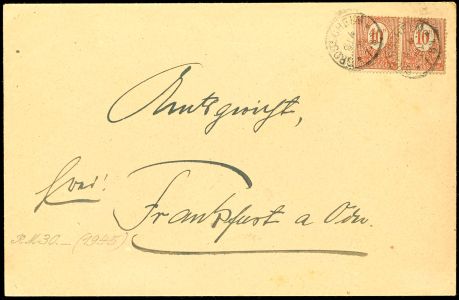 10 10
Amtsgericht,
frei!
Frankfurt a Oder.
R.M. 30.— (1945)